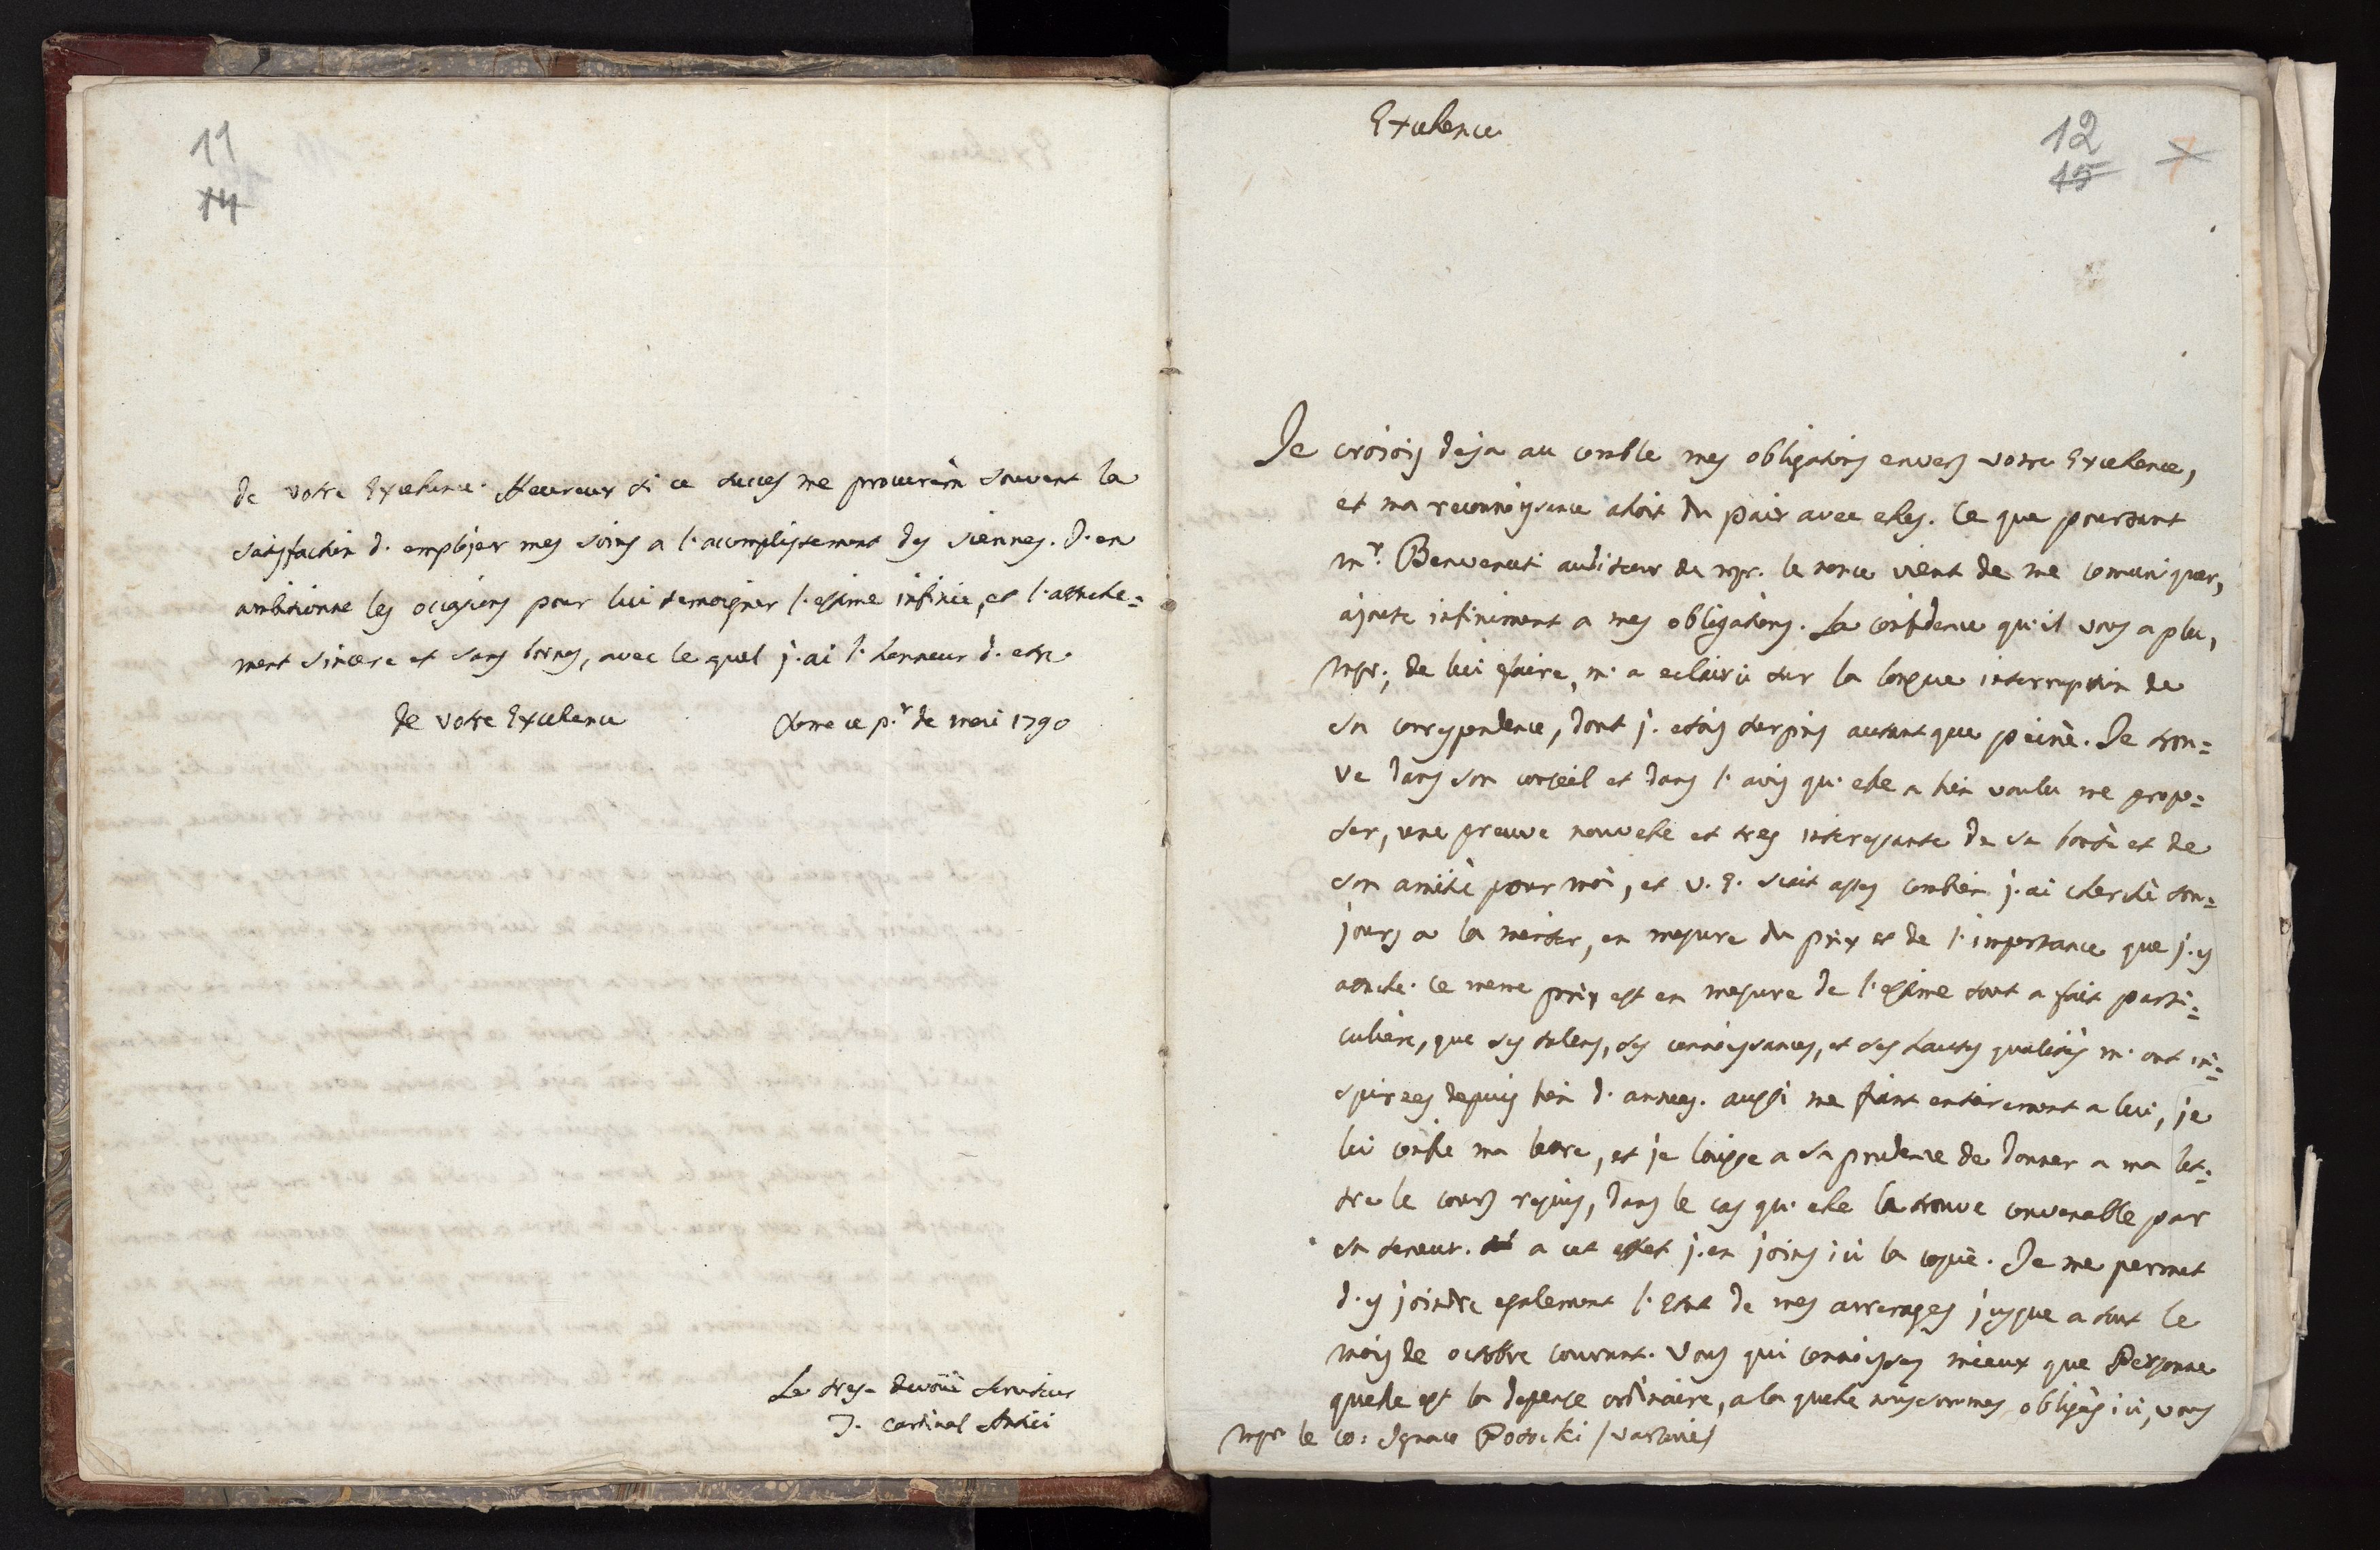 11
14
de votre Excelence. Heureux si ce succes me procurera souvent la
satisfaction d'emploier mes soins a l'accomplissement des siennes. J'en
ambitionne les occasions pour lui temoigner l'estime infinie, et l'attache=
ment sincere et sans bornes, avec le quel j'ai l'honneur d'etre
de votre Excelence
Rome ce p.r de mai 1790
Le tres-devoüé serviteur
T. Cardinal Antici
Excelence
12
15
Je croiois deja au comble mes obligations envers votre Excelence,
et ma reconnoissance aloit du pair avec elles. Ce que pourtant
mr. Benvenuti auditeur de mgr. le nonce vient de me comuniquer,
ajoute infiniment a mes obligations. La confidence qu'il vous a plu,
Mgr., de lui faire, m'a eclairci sur la longue interruption de
sa correspondence, dont j'etois surpris autant que peiné. Je trou=
ve dans son conseil et dans l'avis qu'elle a bien voulu me propo=
ser, une preuve nouvelle et tres interessante de sa bonté et de
son amitié pour moi, et V. E. scait assez combien j'ai cherché tou=
jours a la meriter, en mesure du prix et de l'importance que j'y
attache. Ce meme prix est en mesure de l'estime tout a fait parti=
culiere, que ses talens, ses connoissances, et ses hautes qualités m'ont in=
spirées depuis bien d'annees. aussi me fiant entierement a lui, je
lui confie ma lettre, et je laisse a sa prudence de donner a ma let=
tre le cours requis, dans le cas qu'elle la trouve convenable par
sa teneur. a cet effet j'en joins ici la copie. Je me permet
d'y joindre egalement l'Etat de mes arrerages jusque a tout le
mois de octobre courant. Vous qui connoissez mieux que Personne
quelle est la depense ordinaire, a la quelle nous sommes obligés ici, vous
Mgr le co: Ignace Potocki /varsovie/